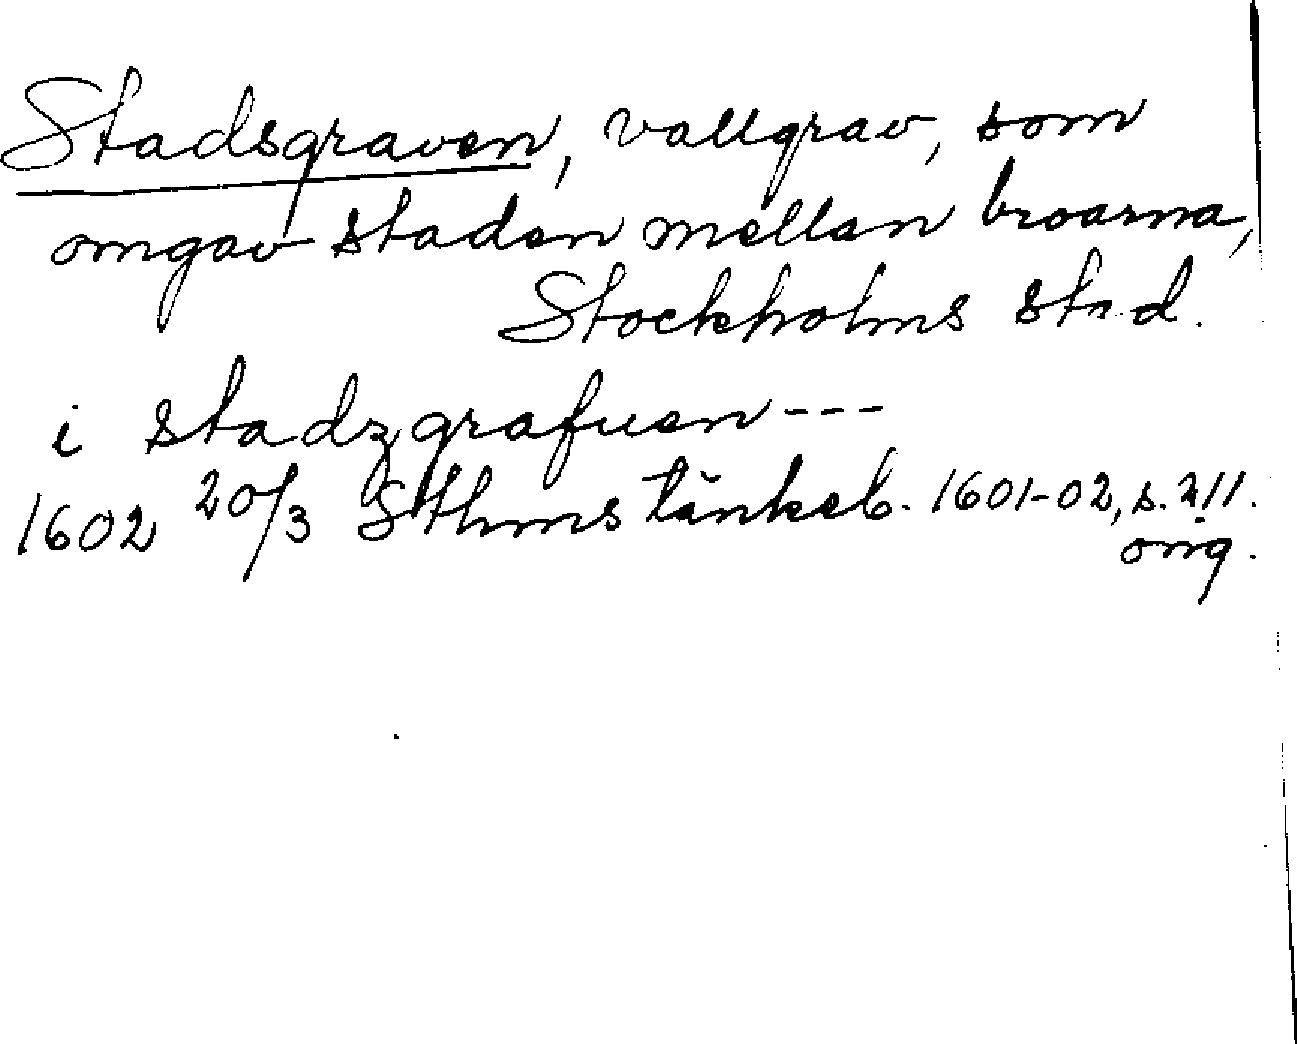 Stadsgraven, vallgrav, som
omgav staden mellan broarna,
Stockholms stad.
i stadzgrafuen ---
1602 20/3 Sthms tänkeb. 1601-02, s. 211.
orig.